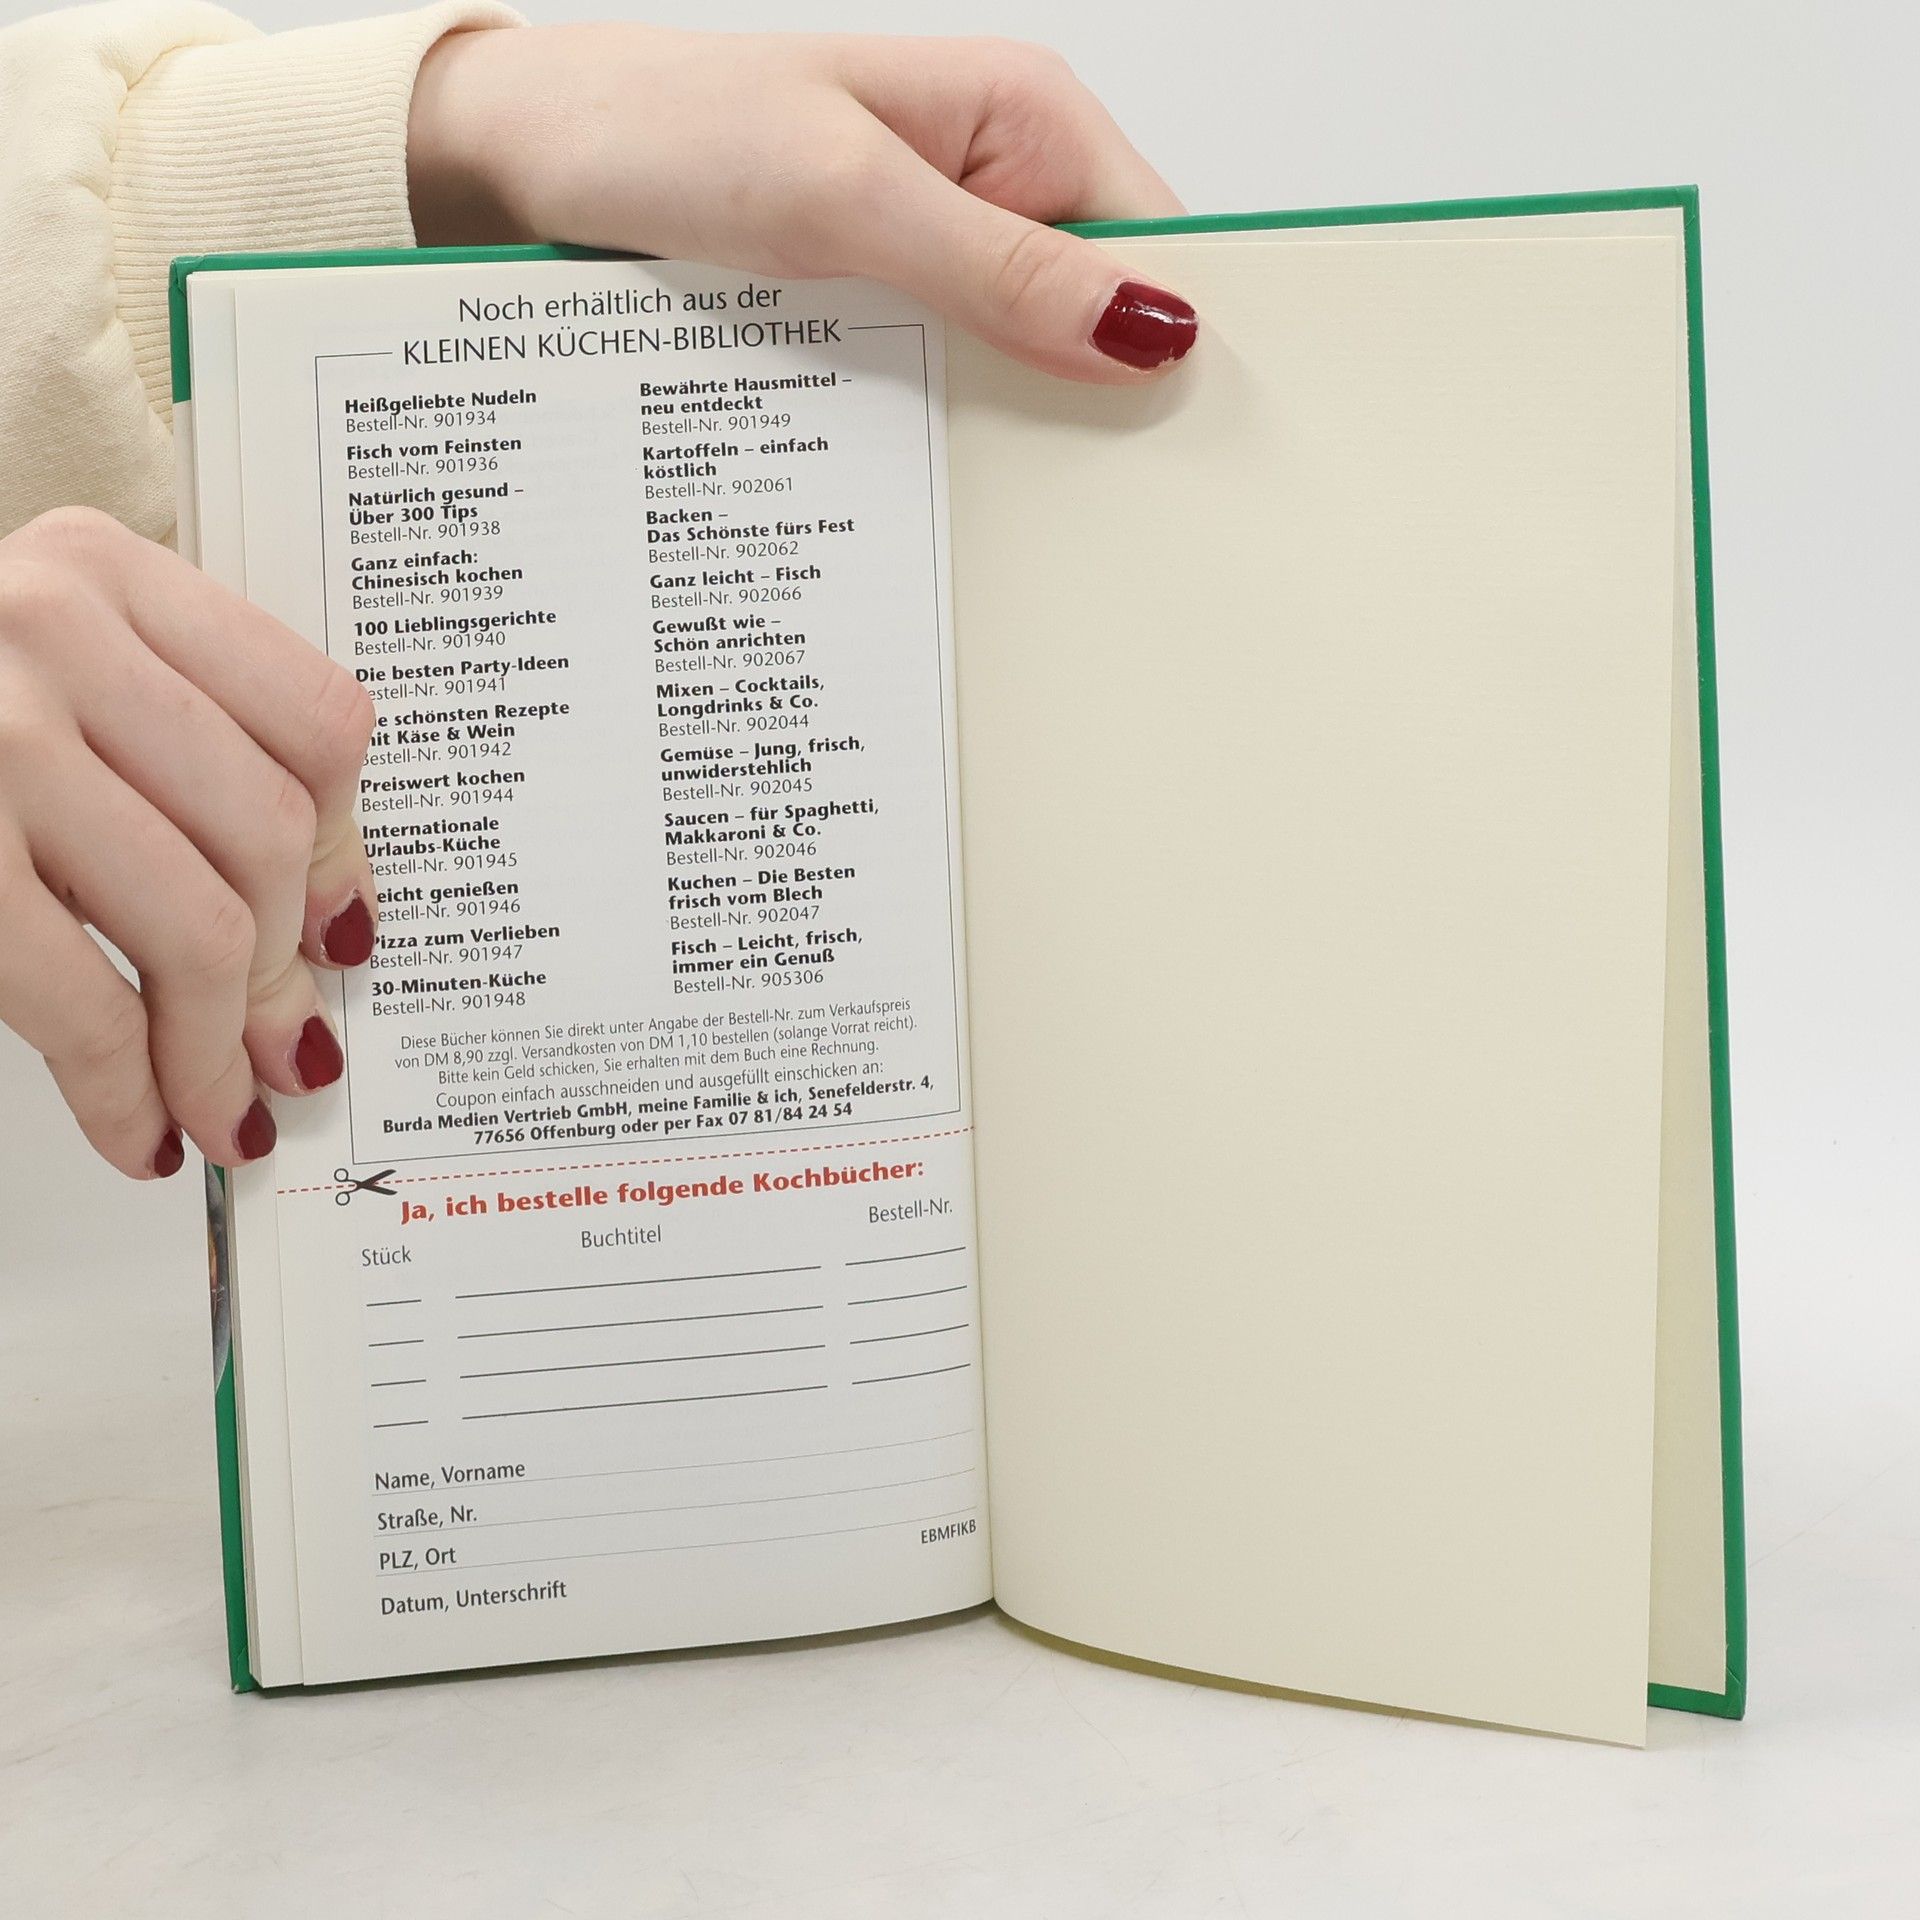 Noch erhältlich aus der
KLEINEN KÜCHEN-BIBLIOTHEK
Heißgeliebte Nudeln
Bestell-Nr. 901934
Fisch vom Feinsten
Bestell-Nr. 901936
Natürlich gesund –
Über 300 Tips
Bestell-Nr. 901938
Ganz einfach:
Chinesisch kochen
Bestell-Nr. 901939
100 Lieblingsgerichte
Bestell-Nr. 901940
Die besten Party-Ideen
estell-Nr. 901941
e schönsten Rezepte
it Käse & Wein
estell-Nr. 901942
Preiswert kochen
Bestell-Nr. 901944
Internationale
Urlaubs-Küche
estell-Nr. 901945
eicht genießen
estell-Nr. 901946
Pizza zum Verlieben
Bestell-Nr. 901947
30-Minuten-Küche
Bestell-Nr. 901948
Bewährte Hausmittel –
neu entdeckt
Bestell-Nr. 901949
Kartoffeln – einfach
köstlich
Bestell-Nr. 902061
Backen –
Das Schönste fürs Fest
Bestell-Nr. 902062
Ganz leicht – Fisch
Bestell-Nr. 902066
Gewußt wie –
Schön anrichten
Bestell-Nr. 902067
Mixen – Cocktails,
Longdrinks & Co.
Bestell-Nr. 902044
Gemüse – Jung, frisch,
unwiderstehlich
Bestell-Nr. 902045
Saucen – für Spaghetti,
Makkaroni & Co.
Bestell-Nr. 902046
Kuchen – Die Besten
frisch vom Blech
Bestell-Nr. 902047
Fisch – Leicht, frisch,
immer ein Genuß
Bestell-Nr. 905306
Diese Bücher können Sie direkt unter Angabe der Bestell-Nr. zum Verkaufspreis
von DM 8,90 zzgl. Versandkosten von DM 1,10 bestellen (solange Vorrat reicht).
Bitte kein Geld schicken, Sie erhalten mit dem Buch eine Rechnung.
Coupon einfach ausschneiden und ausgefüllt einschicken an:
Burda Medien Vertrieb GmbH, meine Familie & ich, Senefelderstr. 4,
77656 Offenburg oder per Fax 07 81/84 24 54
Ja, ich bestelle folgende Kochbücher:
Stück Buchtitel Bestell-Nr.
Name, Vorname
Straße, Nr.
PLZ, Ort
EBMFIKB
Datum, Unterschrift